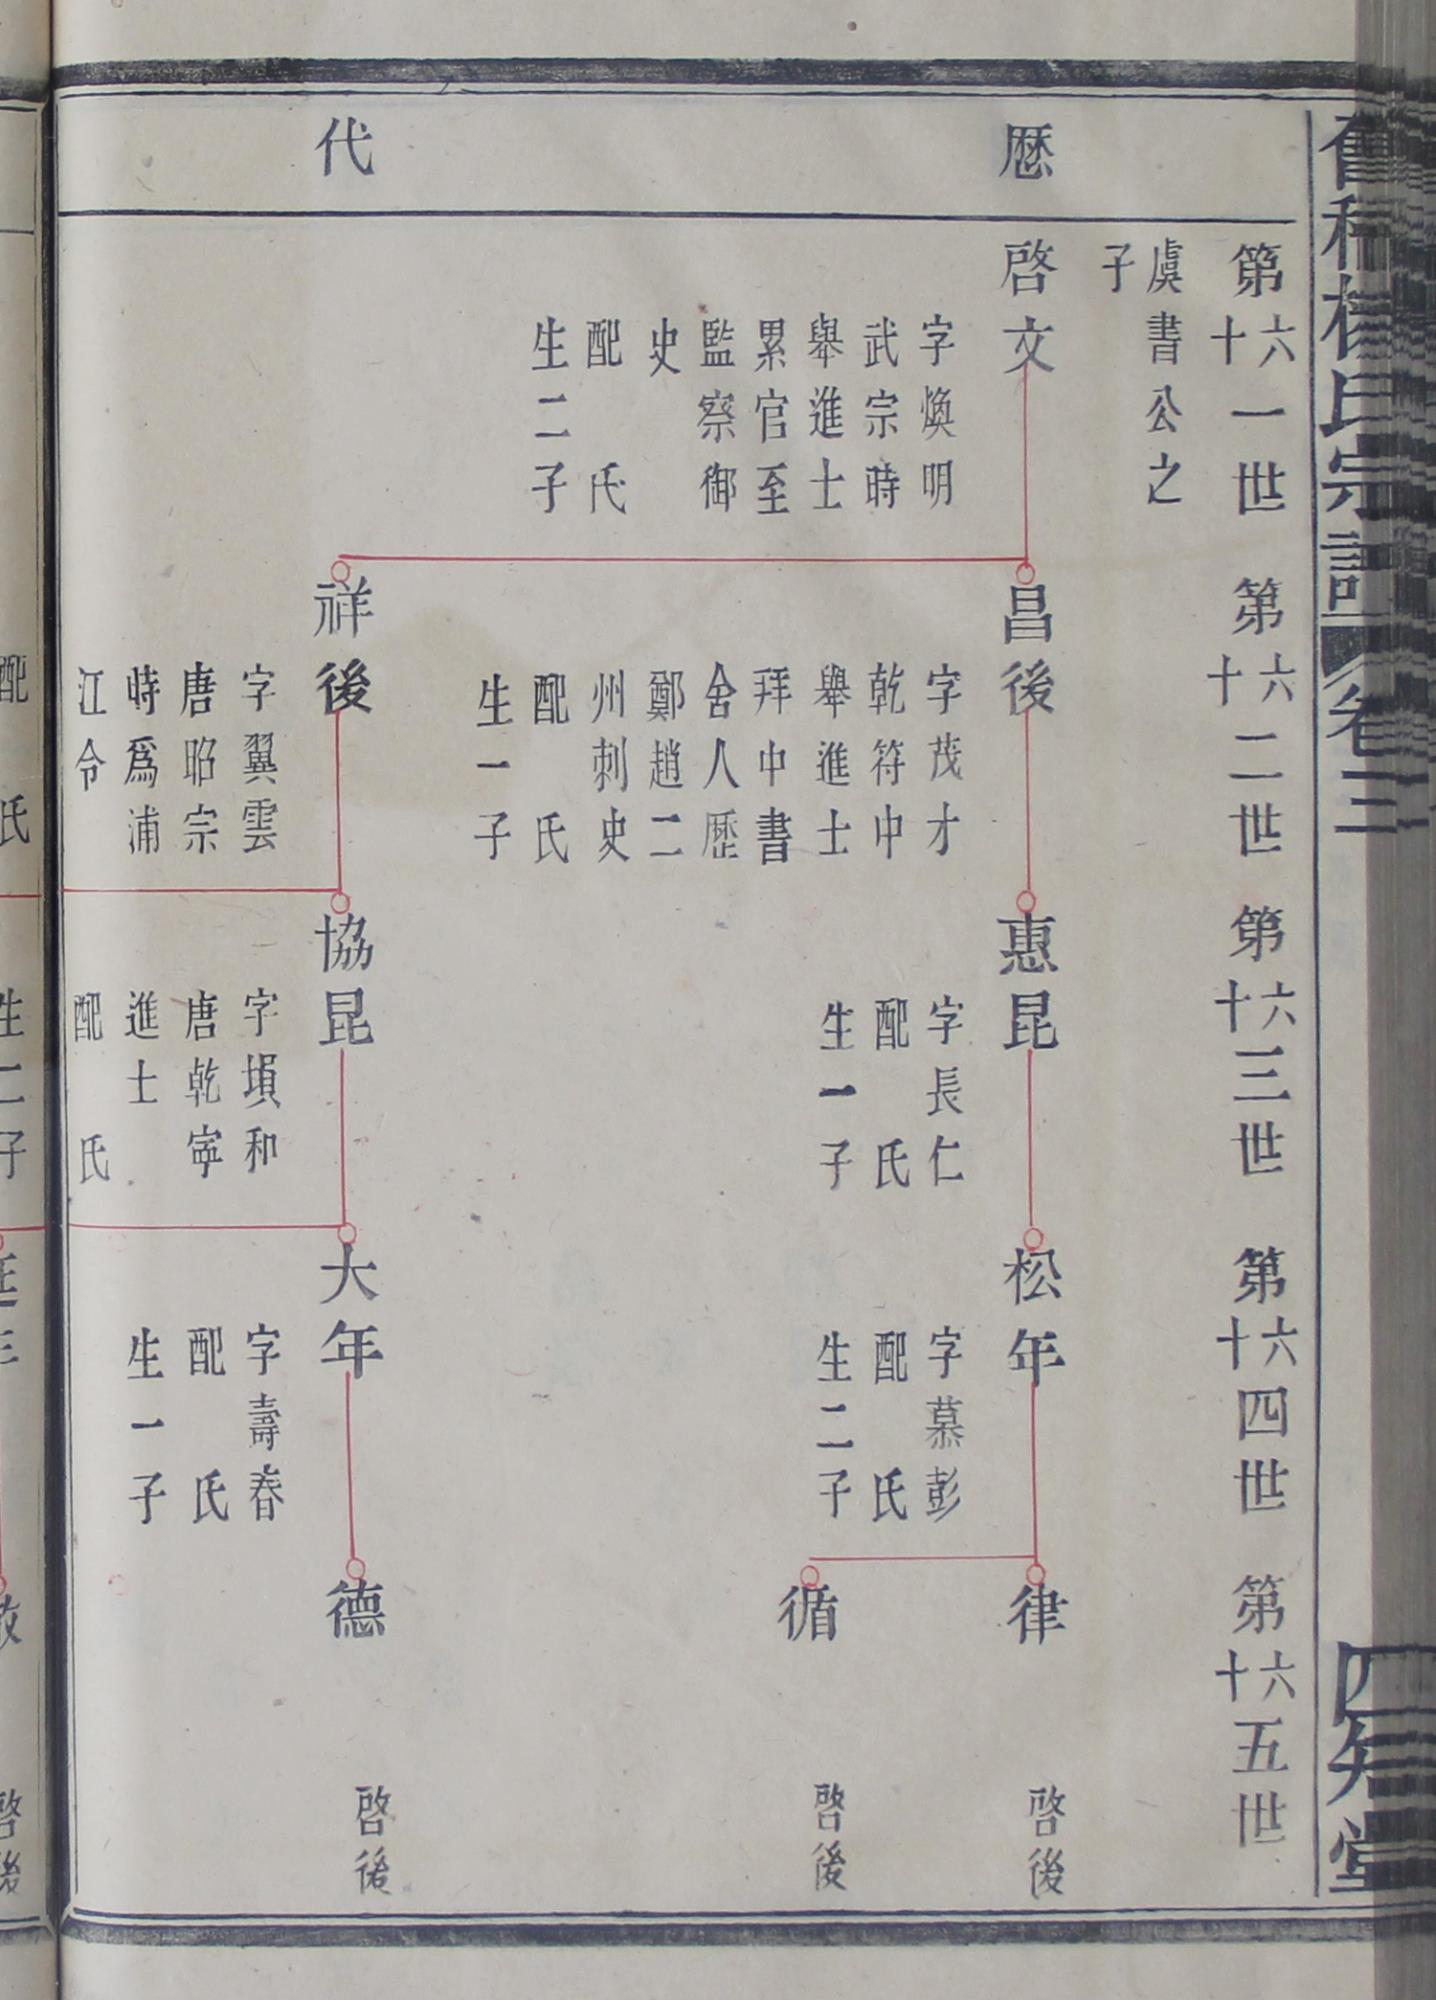 楊氏宗譜
卷三
堂
歷
代
第六十一世
第六十二世
第六十三世
第六十四世
第六十五世
虞書公之
子
啓文
字煥明
武宗時
舉進士
累官至
監察御
史
配 氏
生二子
昌後
字茂才
乾符中
舉進士
拜中書
舍人歷
鄭趙二
州刺史
配 氏
生一子
惠昆
字長仁
配 氏
生一子
松年
字慕彭
配 氏
生二子
律
啓後
循
啓後
祥後
字翼雲
唐昭宗
時爲浦
江令
協昆
字塤和
唐乾寧
進士
配 氏
大年
字壽春
配 氏
生一子
德
啓後
配 氏
生二子
啓後